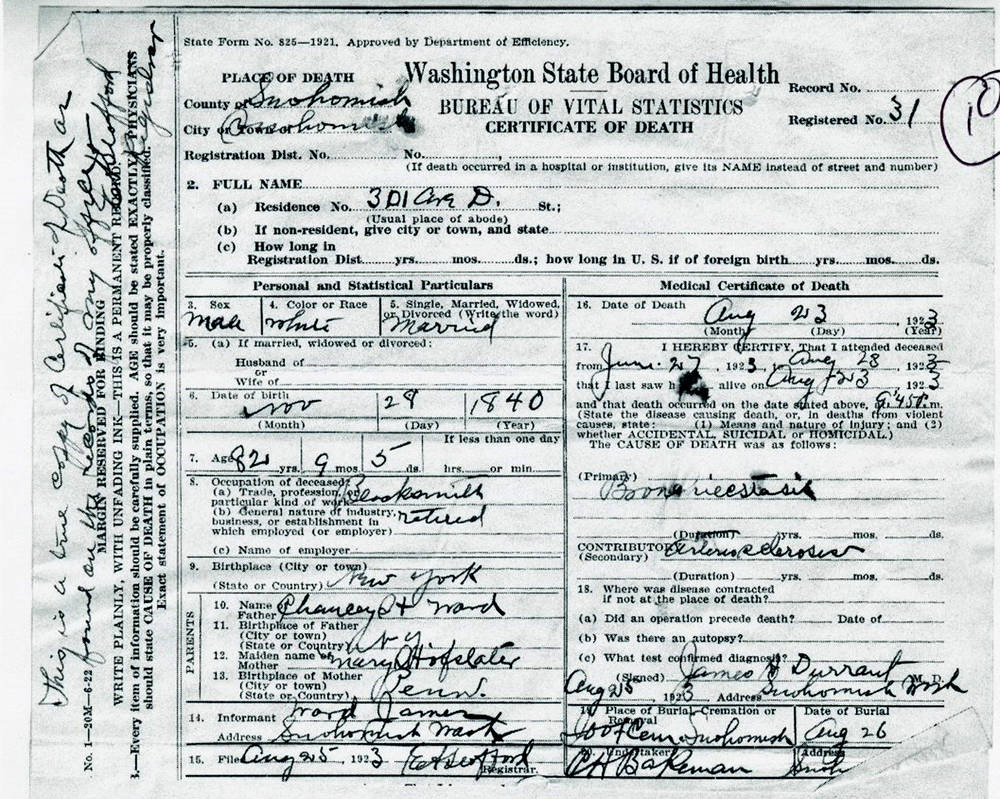 State Form No. 825—1921. Approved by Department of Efficiency.
PLACE OF DEATH
Washington State Board of Health
BUREAU OF VITAL STATISTICS
CERTIFICATE OF DEATH
Record No.
Registered No. 31
10
County of Snohomish
City or Town of Snohomish
Registration Dist. No. No.
(If death occurred in a hospital or institution, give its NAME instead of street and number)
2. FULL NAME
(a) Residence No. 301 Ave D. St.;
(Usual place of abode)
(b) If non-resident, give city or town, and state
(c) How long in
Registration Dist. yrs. mos. ds.; how long in U. S. if of foreign birth yrs. mos. ds.
Personal and Statistical Particulars
3. Sex
Male
4. Color or Race
White
5. Single, Married, Widowed,
or Divorced (Write the word)
Married
5. (a) If married, widowed or divorced:
Husband of
or
Wife of
6. Date of birth
Nov 28 1840
(Month) (Day) (Year)
If less than one day
7. Age 82 yrs. 9 mos. 5 ds. hrs. or min.
8. Occupation of deceased:
(a) Trade, profession, or
particular kind of work Blacksmith
(b) General nature of industry,
business, or establishment in
which employed (or employer) retired
(c) Name of employer
9. Birthplace (City or town)
(State or Country) New York
PARENTS
10. Name of
Father Chancey H Ward
11. Birthplace of Father
(City or town)
(State or Country) N Y
12. Maiden name of
Mother Mary Hofslater
13. Birthplace of Mother
(City or town)
(State or Country) Penn.
14. Informant Ward James
Address Snohomish Wash
15. Filed Aug 25, 1923
Registrar.
Medical Certificate of Death
16. Date of Death
Aug 23, 1923
(Month) (Day) (Year)
17. I HEREBY CERTIFY, That I attended deceased
from June 27, 1923, to Aug 23 1923
that I last saw h alive on Aug 23 1923
and that death occurred on the date stated above, at 9:45 P.m.
(State the disease causing death, or, in deaths from violent
causes, state: (1) Means and nature of injury; and (2)
whether ACCIDENTAL, SUICIDAL or HOMICIDAL.)
The CAUSE OF DEATH was as follows:
(Primary)
(Duration) yrs. mos. ds.
CONTRIBUTORY Arteriosclerosis
(Secondary)
(Duration) yrs. mos. ds.
18. Where was disease contracted
if not at the place of death?
(a) Did an operation precede death? Date of
(b) Was there an autopsy?
(c) What test confirmed diagnosis?
(Signed) James H Durrant M. D.
Aug 25, 1923 Address Snohomish Wash
19. Place of Burial, Cremation or
Removal
IOOF Cem. Snohomish
Date of Burial
Aug 26
20. Undertaker
C H Bakeman
Address
Snoh
This is a true copy of Certificate of Death as
found on the records of my office
MARGIN RESERVED FOR BINDING
WRITE PLAINLY, WITH UNFADING INK—THIS IS A PERMANENT RECORD.
3.—Every item of information should be carefully supplied. AGE should be stated EXACTLY. PHYSICIANS
should state CAUSE OF DEATH in plain terms, so that it may be properly classified.
Exact statement of OCCUPATION is very important.
No. 1—20M—6-22